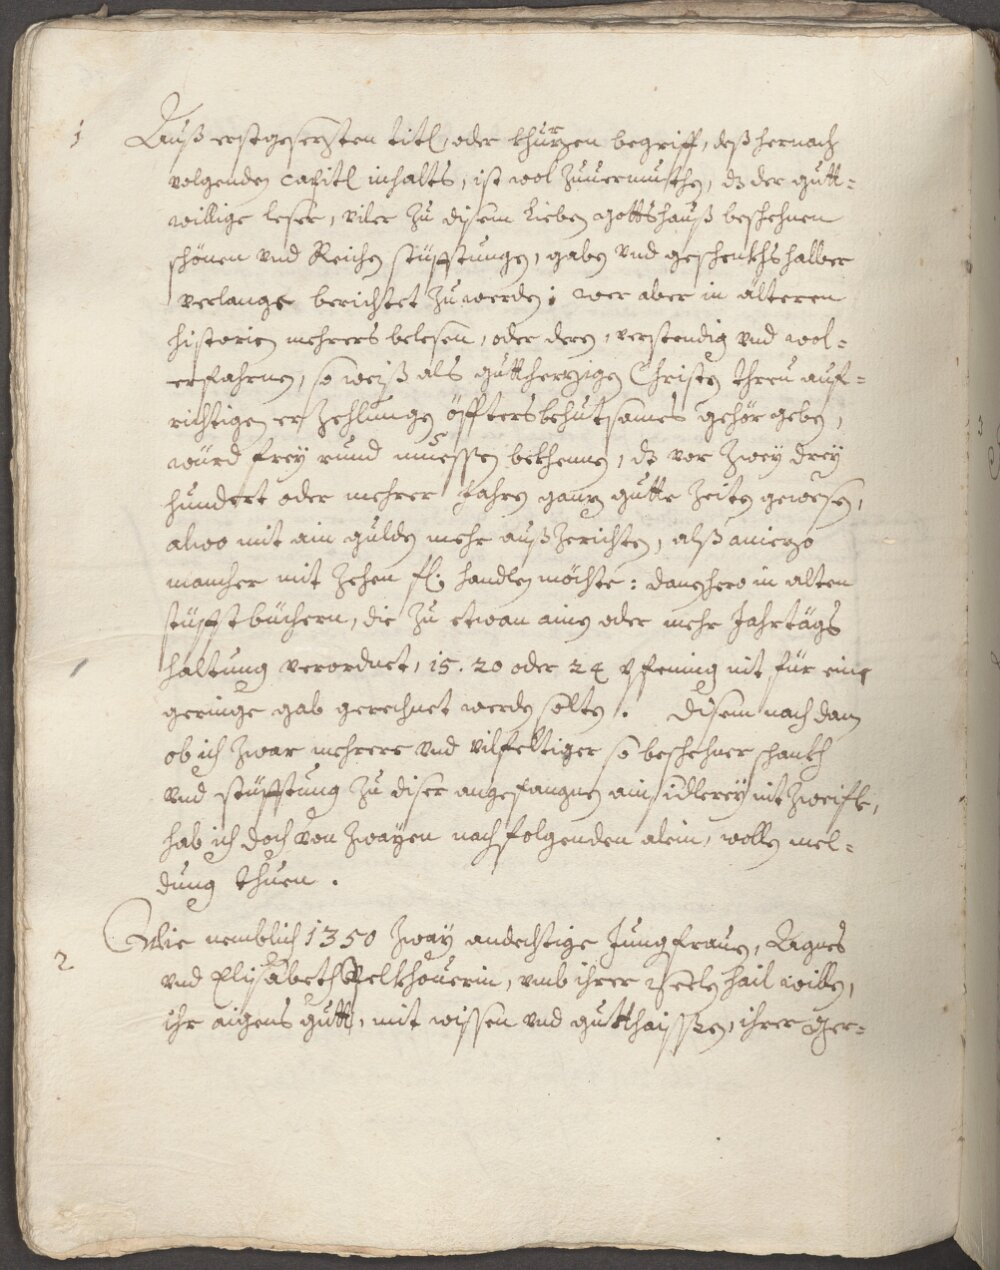 1 Auß erstgesezten titl, oder khurzen begriff, deß hernach
volgenden Capitl inhalts, ist wol zuuermuthen, dz der gutt=
willige leser, viler zu disem lieben Gottshauß beschehnen
schönen vnd Reichen stüfftungen, gaben vnd geschenkhs halber
verlange berichtet zu werden; wer aber in älteren
historien mehrers belesen, oder deren, verstendig vnd wol=
erfahrnen, so weiß als guttherzigen Christen ihren auf=
richtigen erzehlungen öffters behutsames gehör geben,
würd frey rund muessen bekhennen, dz vor zwey drey
hundert oder mehrer Jahren ganz gutte Zeiten gewesen,
alwo mit ain gulden mehr außzerichten, alß aniezo
mancher mit zehen fl: handlen möchte: danenhero in alten
stüfftbüchern, die zu etwan ainen oder mehr Jahrtägs
haltung verordnet, 15. 20 oder 24 pfening nit für eine
geringe gab gerechnet werden solten. Disem nach dan
ob ich zwar mehrere vnd vilfeltiger so beschehner schankh
vnd stüfftung zu diser angefangnen ainsidlerey nit zweifle,
hab ich doch von zwayen nachfolgenden alein, wollen mel=
dung thuen.
2 Wie nemblich 1350 zway andechtige Jungfrauen, Agnes
vnd Elisabeth Pelkhouerin, vmb ihrer seelen hail willen,
ihr aigens gutt, mit wissen vnd gutthaissen, ihrer Ger=